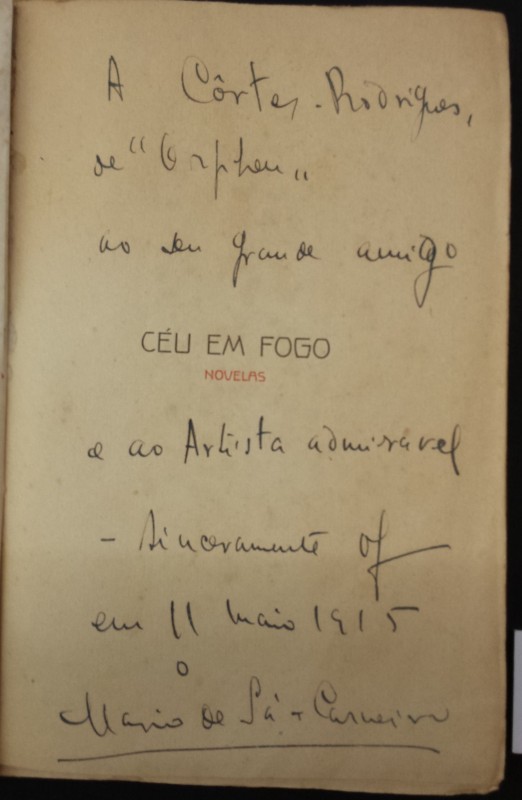 A Côrtes-Rodrigues,
de "Orpheu"
ao seu grande amigo
CÉU EM FOGO
NOVELAS
e ao Artista admiravel
- sinceramente of
em 11 maio 1915
o
Mario de Sá-Carneiro